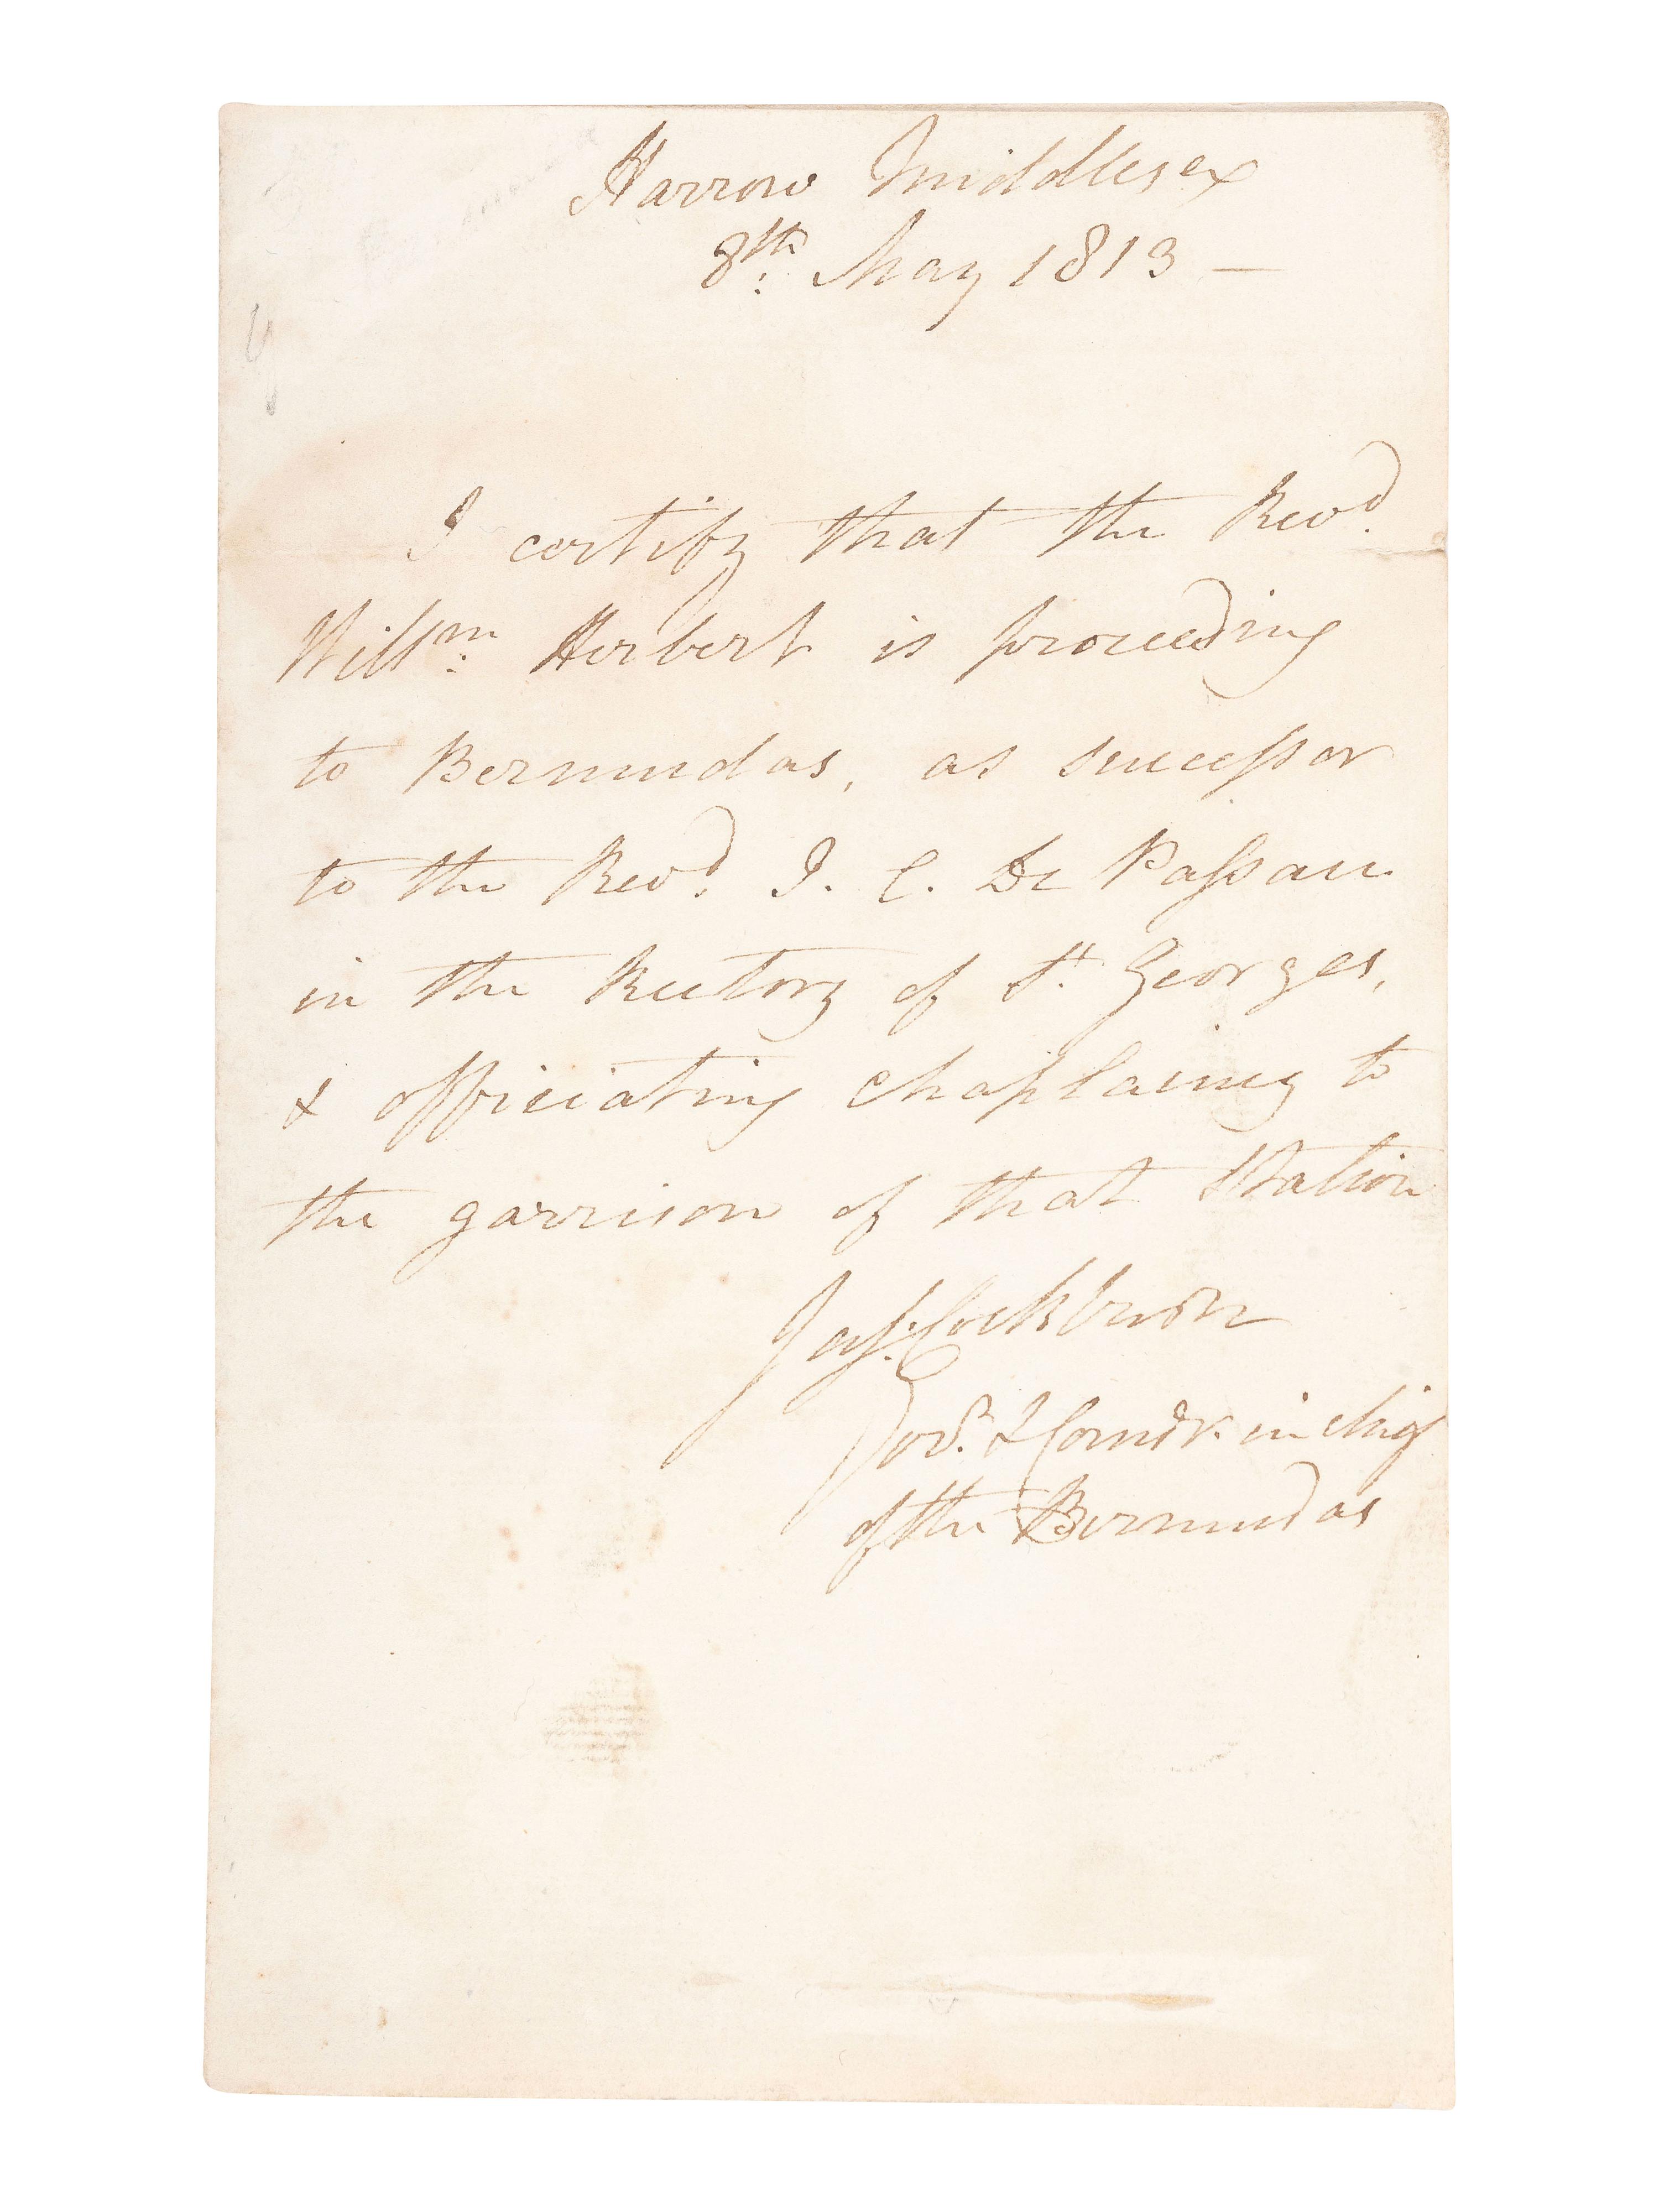 Harrow Middlesex
8th May 1813 —
I certify that the Revd.
Willm Herbert is proceeding
to Bermudas, as successor
to the Revd. J. C. De Passau
in the Rectory of St. Georges,
& officiating Chaplaincy to
the garrison of that Station
Jas. Cockburn
Govr. & Comdr. in chief
of the Bermudas